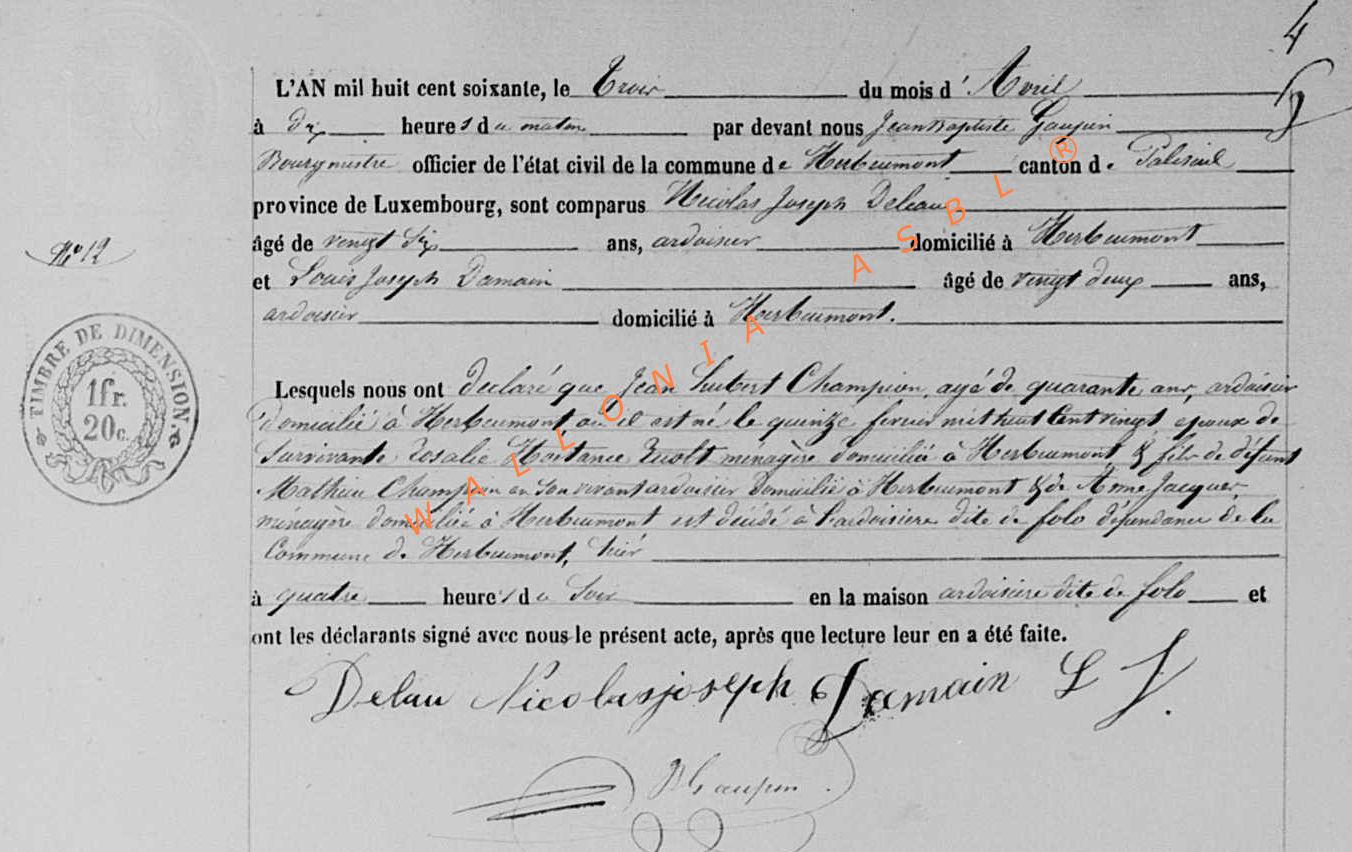 4
L'AN mil huit cent soixante, le Trois du mois d' Avril
à dix heures du matin par devant nous Jean Baptiste Gaupin
Bourgmestre officier de l'état civil de la commune de Herbeumont canton de Paliseul
province de Luxembourg, sont comparus Nicolas Joseph Deleau
âgé de vengt six ans, ardoisier domicilié à Herbeumont
N° 12
et Louis Joseph Damain âgé de vingt deux ans,
ardoisier domicilié à Herbeumont.
TIMBRE DE DIMENSION.
1fr.
20c.
Lesquels nous ont declaré que Jean hubert Champion, agé de quarante ans, ardoisier
domicilié à Herbeumont, où il est né le quinze fevrier mil huit Cent vingt epoux de
Survivante Rosalie Hortance menagère domiciliée à Herbeumont & fils de défunt
Mathieu Champion en Son vivant ardoisier domicilié à Herbeumont & de Anne Jacques,
ménagère domiciliée à Herbeumont est décidé à l'ardoisière dite de folo dépendance de la
Commune de Herbeumont, hier
à quatre heures du Soir en la maison ardoisière dite de folo et
ont les déclarants signé avec nous le présent acte, après que lecture leur en a été faite.
Delau Nicolasjoseph Damain L J.
JB Gaupin
WALLONIA ASBL ®